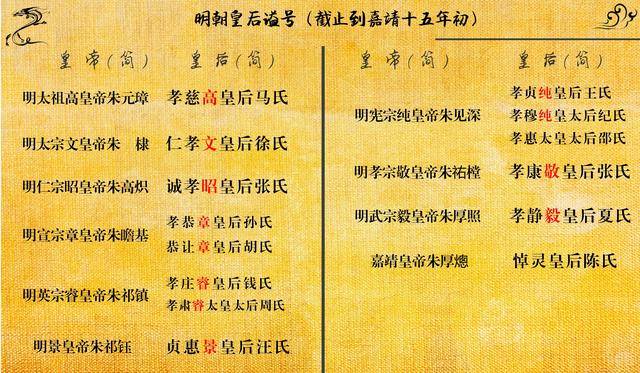 明朝皇后谥号（截止到嘉靖十五年初）
皇帝(简) 皇后(简)
明太祖高皇帝朱元璋 孝慈高皇后马氏
明太宗文皇帝朱 棣 仁孝文皇后徐氏
明仁宗昭皇帝朱高炽 诚孝昭皇后张氏
明宣宗章皇帝朱瞻基 孝恭章皇后孙氏
恭让章皇后胡氏
明英宗睿皇帝朱祁镇 孝庄睿皇后钱氏
孝肃睿太皇太后周氏
明景皇帝朱祁钰 贞惠景皇后汪氏
皇帝(简) 皇后(简)
明宪宗纯皇帝朱见深 孝贞纯皇后王氏
孝穆纯皇太后纪氏
孝惠太皇太后邵氏
明孝宗敬皇帝朱祐樘 孝康敬皇后张氏
明武宗毅皇帝朱厚照 孝静毅皇后夏氏
嘉靖皇帝朱厚熜 悼灵皇后陈氏